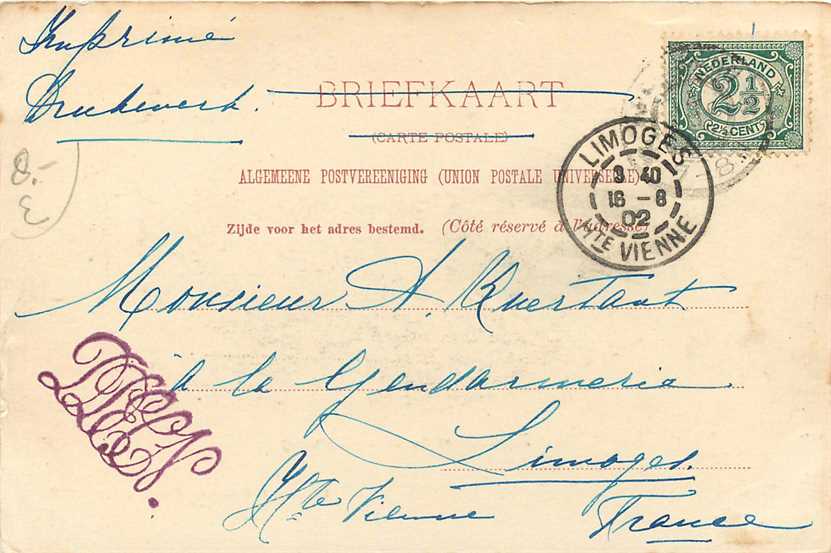 Imprimé
Drukwerk.
BRIEFKAART
(CARTE POSTALE)
ALGEMEENE POSTVEREENIGING (UNION POSTALE UNIVERSELLE)
Zijde voor het adres bestemd. (Côté réservé à l'adresse)
NEDERLAND
2½
2½ CENT
LIMOGES
9 40
16 - 8
02
HTE VIENNE
8.-
Monsieur A. Kuertant
à la Gendarmerie
Limoges.
Hte Vienne
France